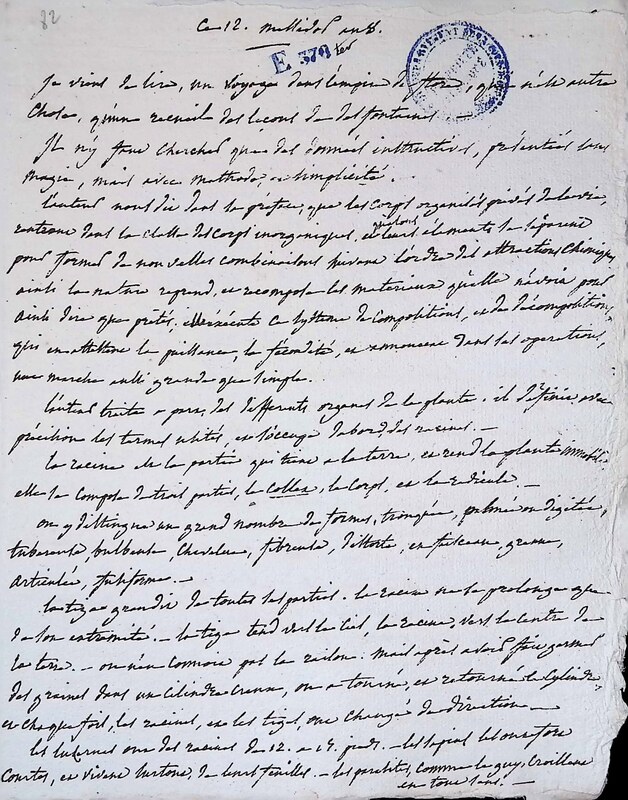 82
Ce 12. messidor an 8.
E 378 ter
je viens de lire, un voyage dans l'empire de flore, qui n'est autre
chose, qu'un recueil des leçons de desfontaines.
Il n'y faut chercher que des données instructives, présentées sans
magie, mais avec méthode, et simplicité.
l'auteur nous dit dans sa préface, que les corps organisés privés de la vie,
rentrent dans la classe des corps inorganiques, et leurs élémens se séparent
pour former de nouvelles combinaisons suivant l'ordre des attractions chimiques
ainsi la nature reprend, et recompose les materiaux qu'elle n'avoit pour
ainsi dire que prêtés. exécute ce systeme de compositions, et de décompositions,
qui en attestent la puissance, la fécondité, et annoncent dans ses operations,
une marche aussi grande que simple.
l'auteur traite a part, des differents organes de la plante. il définit avec
précision les termes usités, et s'occupe d'abord, des racines. —
la racine est la partie qui tient a la terre, et rend la plante immobile
elle se compose de trois parties, le collet, le corps, et la radicule. —
on y distingue un grand nombre de formes, tronquée, palmée ou digitée,
tubereuse, bulbeuse, chevelue, fibreuse, en faisceau, grenue,
articulée, fusiforme. —
la tige grandit de toutes ses parties. la racine ne se prolonge que
de son extremité. — la tige tend vers le ciel, la racine, vers le centre de
la terre. — on n'en connoit pas la raison. mais après avoir fait germer
des graines dans un cilindre creux, on a tourné, et retourné le cylindre,
et chaque fois, les racines, et les tiges, ont changé de direction. —
les luzernes ont des racines de 12. a 15. pieds. — les sapins les ont fort
courtes, et vivent surtout, de leurs feuilles. — les parasites, comme le guy, croissent
en tous sens. —